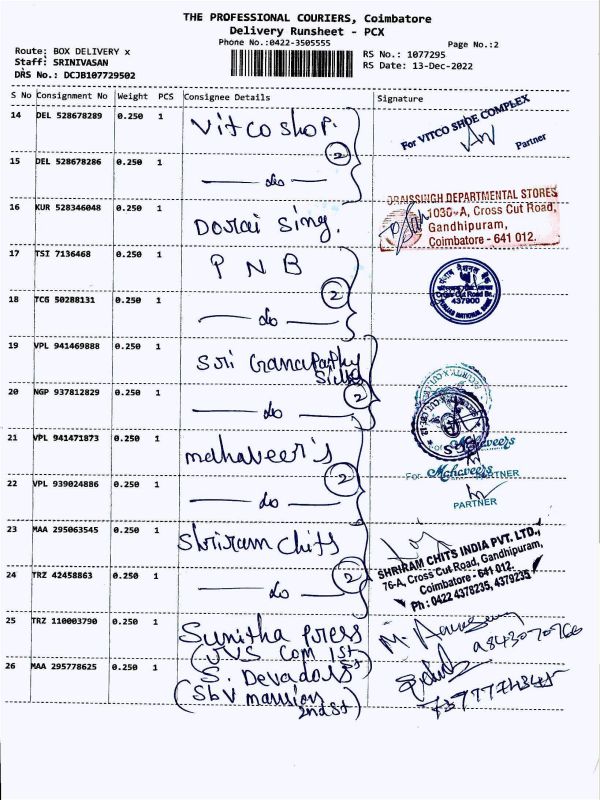 THE PROFESSIONAL COURIERS, Coimbatore
Delivery Runsheet - PCX
Phone No.:0422-3505555
Page No.:2
Route: BOX DELIVERY x
RS No.: 1077295
Staff: SRINIVASAN
RS Date: 13-Dec-2022
DRS No.: DCJB107729502
S No Consignment No Weight PCS Consignee Details Signature
14 DEL 528678289 0.250 1 Vitco shop.
For VITCO SHOE COMPLEX
Partner
2
15 DEL 528678286 0.250 1 do
16 KUR 528346048 0.250 1 Dorai Sing.
DEPARTMENTAL STORES
1030-A, Cross Cut Road,
Gandhipuram,
Coimbatore - 641 012.
17 TSI 7136468 0.250 1 P N B
Cross Cut Road Br.
437900
PUNJAB NATIONAL BANK
2
18 TCG 50288131 0.250 1 do
19 VPL 941469888 0.250 1 Sri Ganapathy
Silks
2
20 NGP 937812829 0.250 1 do
21 VPL 941471873 0.250 1 mahaveer's
Mahaveers
2
For Mahaveers
PARTNER
22 VPL 939024886 0.250 1 do
PARTNER
23 MAA 295063545 0.250 1 Shriram Chits
SHRIRAM CHITS INDIA PVT. LTD.,
76-A, Cross Cut Road, Gandhipuram,
Coimbatore - 641 012.
Ph : 0422 4378235, 4379235
2
24 TRZ 42458863 0.250 1 do
25 TRZ 110003790 0.250 1 Sunitha Press
(VVS Com 1st)
26 MAA 295778625 0.250 1 S. Devadoss
(SBV mansion
2nd St)